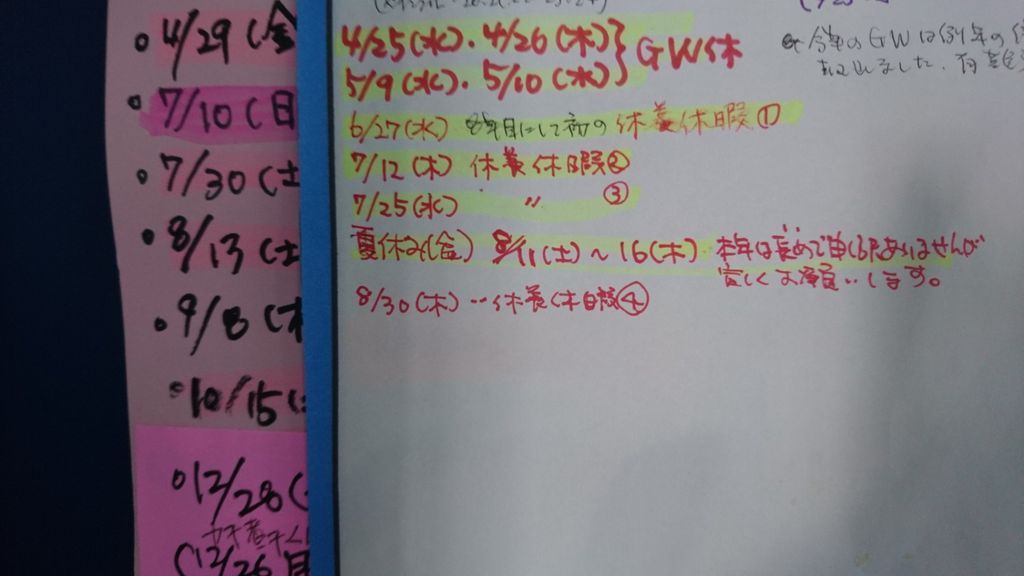 4/29(金
7/10(日
7/30(土
8/13(土
9/8(木
10/15(
12/28(
(12/26 月
4/25(水). 4/26(木)}GW休
5/9(水). 5/10(木)
6/27(水) 8年目にして初の 休養休暇①
7/12(木) 休養休暇②
7/25(水) 〃 ③
夏休み(金) 8/11(土)~16(木) 本年は長めで申し訳ありませんが
宜しくお願いします。
8/30(木)…休養休暇④
今年のGWは例年の
有難